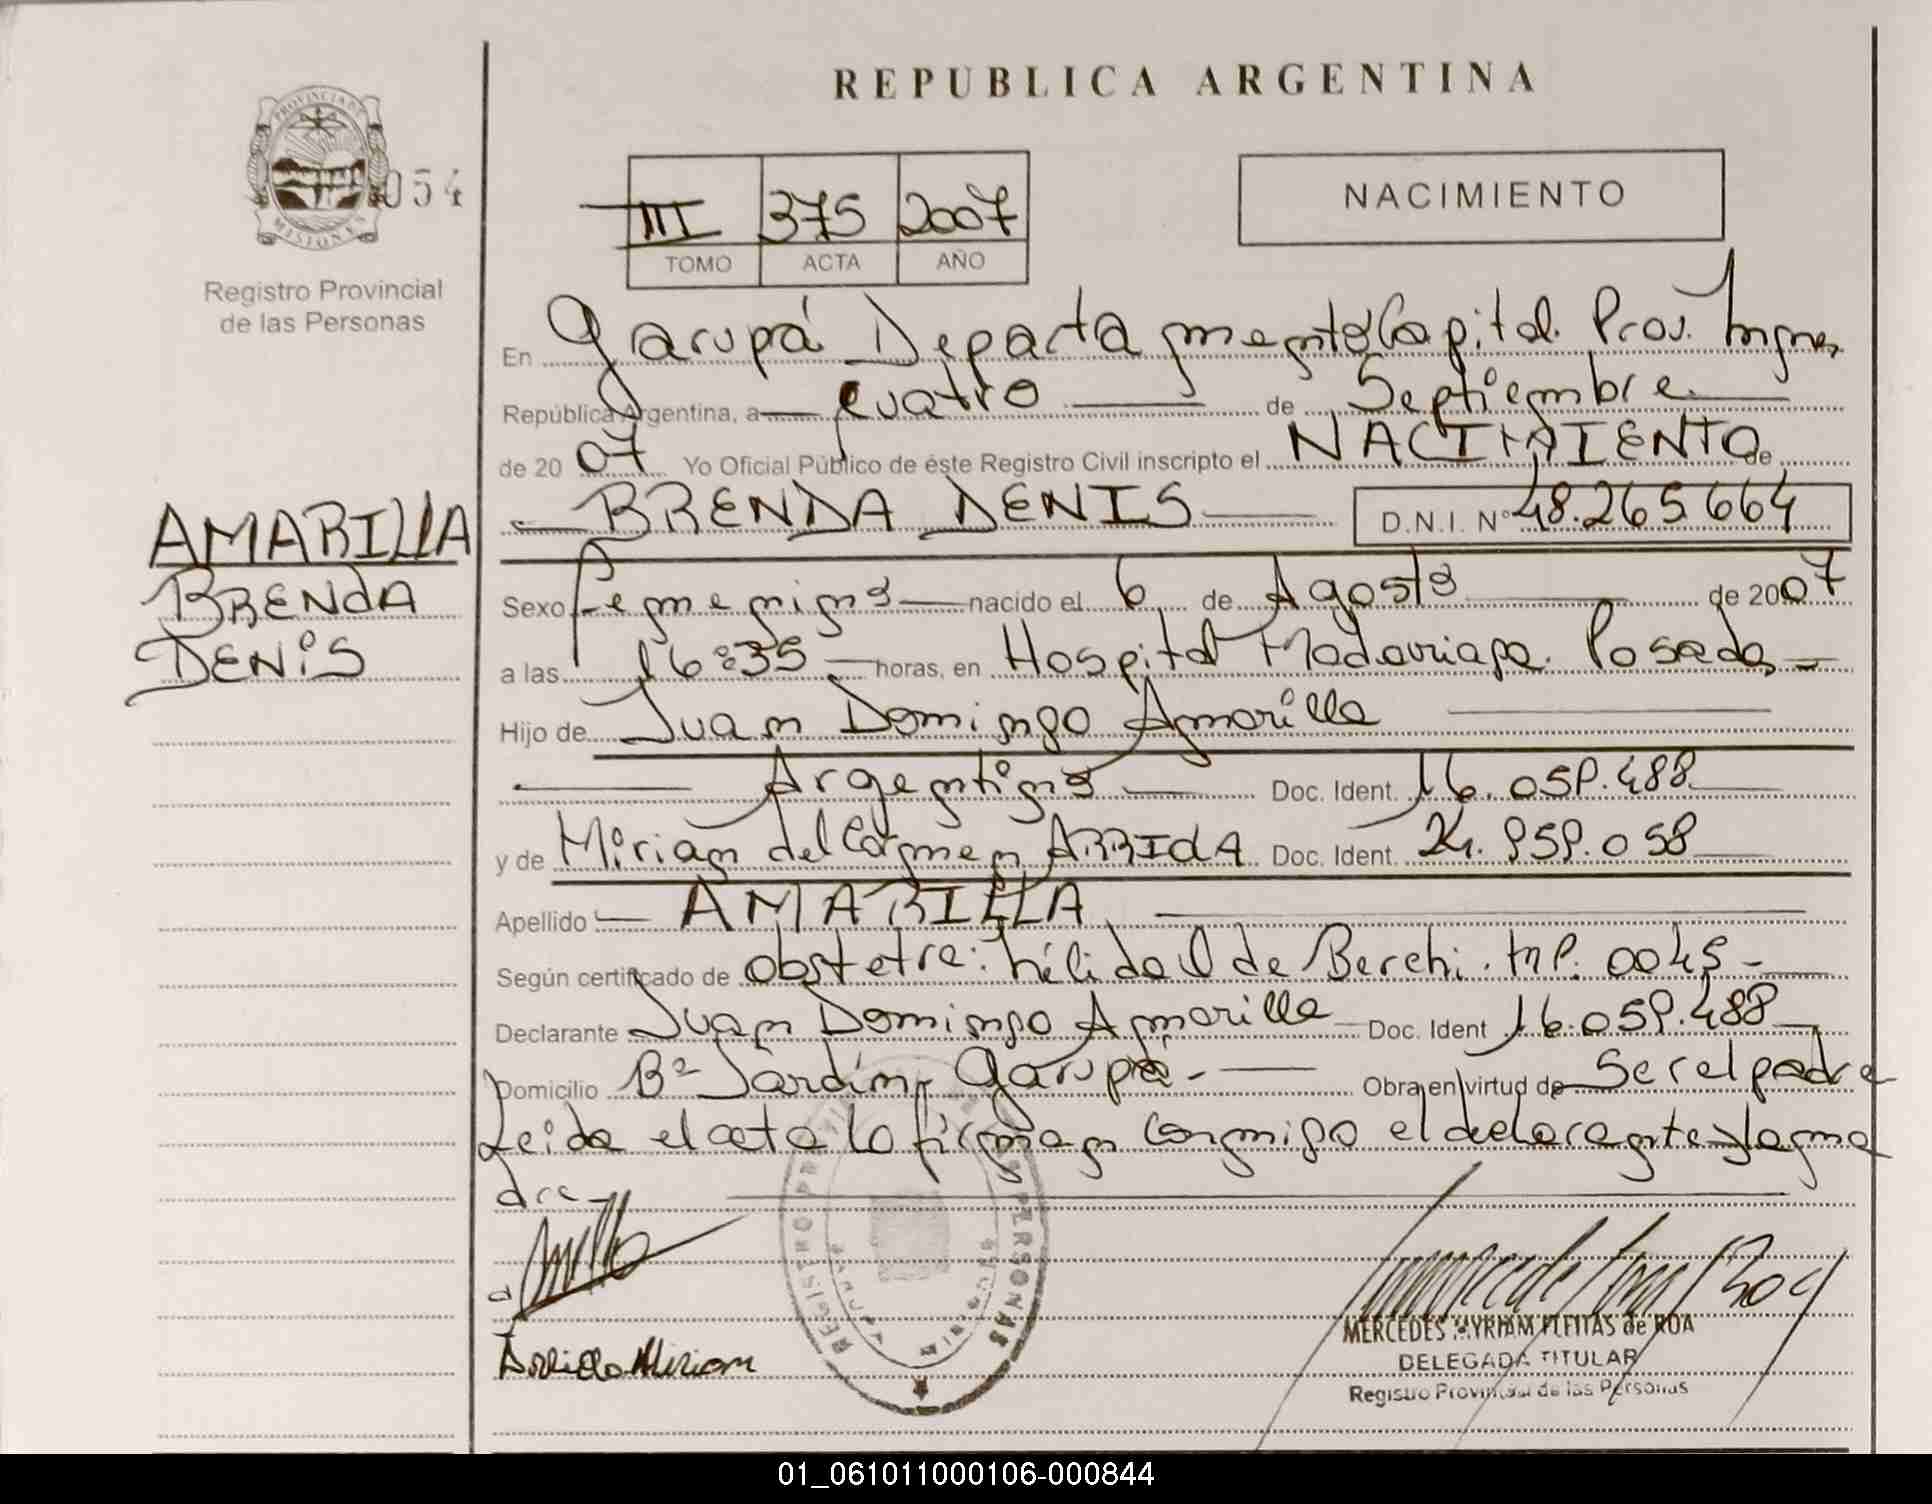 REPUBLICA ARGENTINA
PROVINCIA DE
MISIONES
054
Registro Provincial
de las Personas
III 375 2007
TOMO ACTA AÑO
NACIMIENTO
En Garupá Departamento Capital. Prov. Mnes,
República Argentina, a cuatro de Septiembre
de 20 07 Yo Oficial Público de éste Registro Civil inscripto el NACIMIENTO de
BRENDA DENIS D.N.I. Nº 48.265.664
AMARILLA
BRENDA
DENIS
Sexo femenino nacido el 6 de Agosto de 2007
a las 16:35 horas, en Hospital Madariaga. Posadas
Hijo de Juan Domingo Amarilla
Argentino Doc. Ident. 16.059.488
y de Miriam del Carmen ARRIDA Doc. Ident. 24.959.058
Apellido AMARILLA
Según certificado de obstetra: de Berchi. M.P. 0045
Declarante Juan Domingo Amarilla Doc. Ident 16.059.488
Domicilio Bº Jardín, Garupá. Obra en virtud de Ser el padre
Leida el acta la firman conmigo el declarante y la ma
dre
REGISTRO PERSONAS
Arrida Miriam
MERCEDES MYRIAM FLEITAS de ROA
DELEGADA TITULAR
Registro Provincial de las Personas
01_061011000106-000844